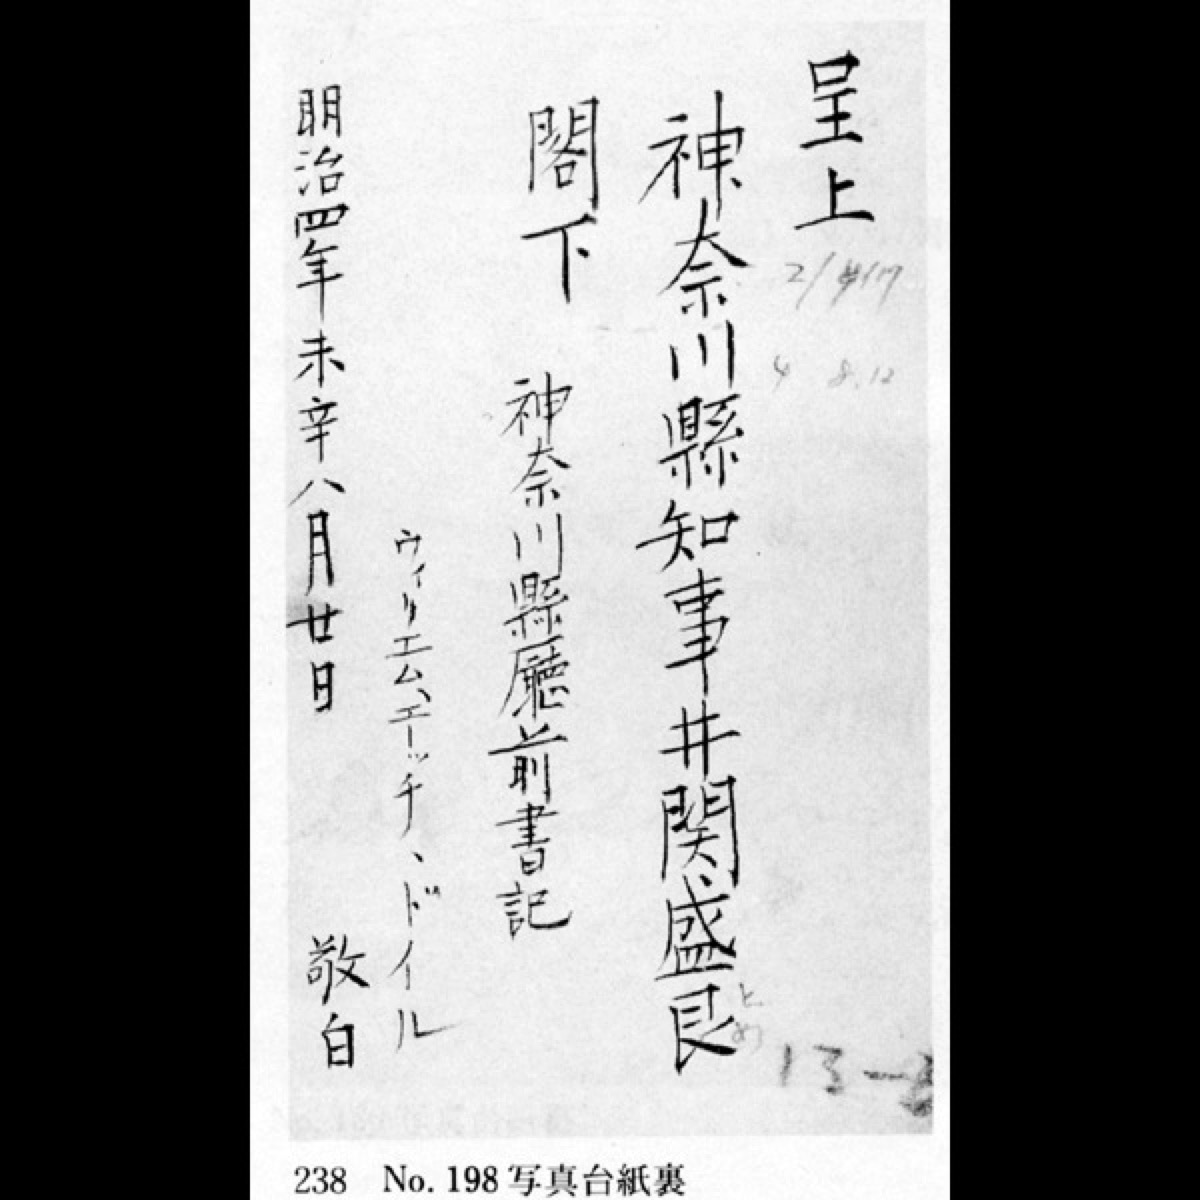 呈上
神奈川縣知事井関盛艮
閣下
神奈川縣廳前書記
ウィリエム、エーッチ、ドイル
敬白
明治四年未辛八月廿日
とめ
13-
238 No. 198 写真台紙裏